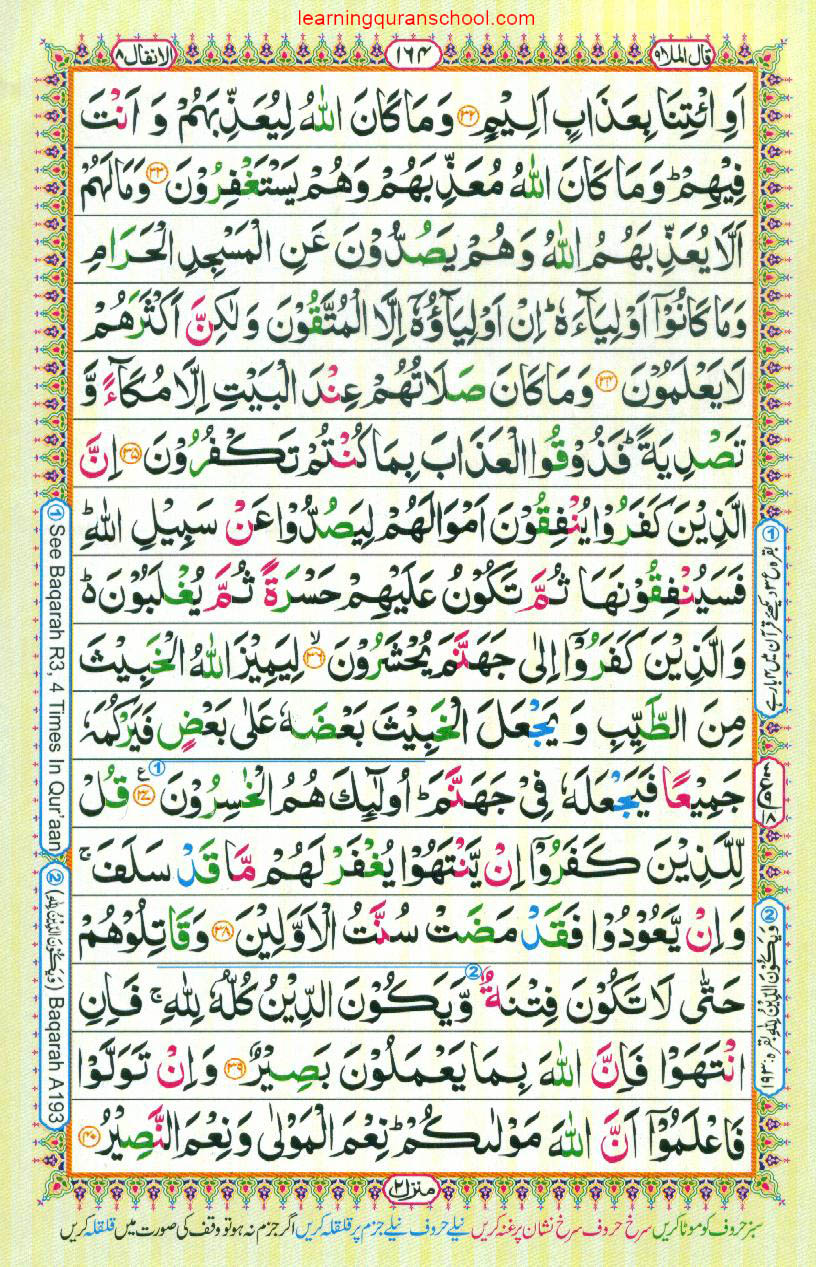 learningquranschool.com
قال الملا ٩
١٦٤
الانفال ٨
اَوِ ائْتِنَا بِعَذَابٍ اَلِيْمٍ ۝۳۲ وَمَا كَانَ اللّٰهُ لِيُعَذِّبَهُمْ وَ اَنْتَ
فِيْهِمْ ؕ وَمَا كَانَ اللّٰهُ مُعَذِّبَهُمْ وَهُمْ يَسْتَغْفِرُوْنَ ۝۳۳ وَمَا لَهُمْ
اَلَّا يُعَذِّبَهُمُ اللّٰهُ وَهُمْ يَصُدُّوْنَ عَنِ الْمَسْجِدِ الْحَرَامِ
وَمَا كَانُوْۤا اَوْلِيَآءَهٗ ؕ اِنْ اَوْلِيَآؤُهٗۤ اِلَّا الْمُتَّقُوْنَ وَلٰكِنَّ اَكْثَرَهُمْ
لَا يَعْلَمُوْنَ ۝۳۴ وَمَا كَانَ صَلَاتُهُمْ عِنْدَ الْبَيْتِ اِلَّا مُكَآءً وَّ
تَصْدِيَةً ؕ فَذُوْقُوا الْعَذَابَ بِمَا كُنْتُمْ تَكْفُرُوْنَ ۝۳۵ اِنَّ
الَّذِيْنَ كَفَرُوْا يُنْفِقُوْنَ اَمْوَالَهُمْ لِيَصُدُّوْا عَنْ سَبِيْلِ اللّٰهِ ؕ
فَسَيُنْفِقُوْنَهَا ثُمَّ تَكُوْنُ عَلَيْهِمْ حَسْرَةً ثُمَّ يُغْلَبُوْنَ ۬ؕ
وَالَّذِيْنَ كَفَرُوْۤا اِلٰى جَهَنَّمَ يُحْشَرُوْنَ ۙ۝۳۶ لِيَمِيْزَ اللّٰهُ الْخَبِيْثَ
مِنَ الطَّيِّبِ وَ يَجْعَلَ الْخَبِيْثَ بَعْضَهٗ عَلٰى بَعْضٍ فَيَرْكُمَهٗ
جَمِيْعًا فَيَجْعَلَهٗ فِيْ جَهَنَّمَ ؕ اُولٰٓئِكَ هُمُ الْخٰسِرُوْنَ ۝۳۷ ع 1 قُلْ
لِّلَّذِيْنَ كَفَرُوْۤا اِنْ يَّنْتَهُوْا يُغْفَرْ لَهُمْ مَّا قَدْ سَلَفَ ۚ
وَاِنْ يَّعُوْدُوْا فَقَدْ مَضَتْ سُنَّتُ الْاَوَّلِيْنَ ۝۳۸ وَقَاتِلُوْهُمْ
حَتّٰى لَا تَكُوْنَ فِتْنَةٌ 2 وَّيَكُوْنَ الدِّيْنُ كُلُّهٗ لِلّٰهِ ۚ فَاِنِ
انْتَهَوْا فَاِنَّ اللّٰهَ بِمَا يَعْمَلُوْنَ بَصِيْرٌ ۝۳۹ وَاِنْ تَوَلَّوْا
فَاعْلَمُوْۤا اَنَّ اللّٰهَ مَوْلٰىكُمْ ؕ نِعْمَ الْمَوْلٰى وَنِعْمَ النَّصِيْرُ ۝۴۰
1 See Baqarah R3, 4 Times In Qur'aan
2 (وَيَكُوْنَ الدِّيْنُ لِلّٰهِ) Baqarah A193
2 وَيَكُوْنَ الدِّيْنُ لِلّٰهِ بقرہ: ۱۹۳
منزل ٢
سبز حروف کو موٹا کریں سرخ حروف سرخ نشان پر غنہ کریں نیلے حروف نیلے جزم پر قلقلہ کریں اگر جزم نہ ہو تو وقف کی صورت میں قلقلہ کریں